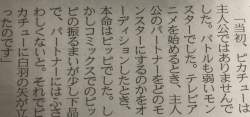 当初、ピカチューは
主人公ではありませんで
した。バトルも弱いモン
スターでした。テレビア
ニメを始めるとき、主人
公のパートナーをどのモ
ンスターにするのかをオ
ーディションしたとき、
本命はピッピでした。し
かしコミックスでのピッ
ピの振るまいが少し下品
で、パートナーにはふさ
わしくないと、それでピ
カチューに白羽の矢が立
ったのです」